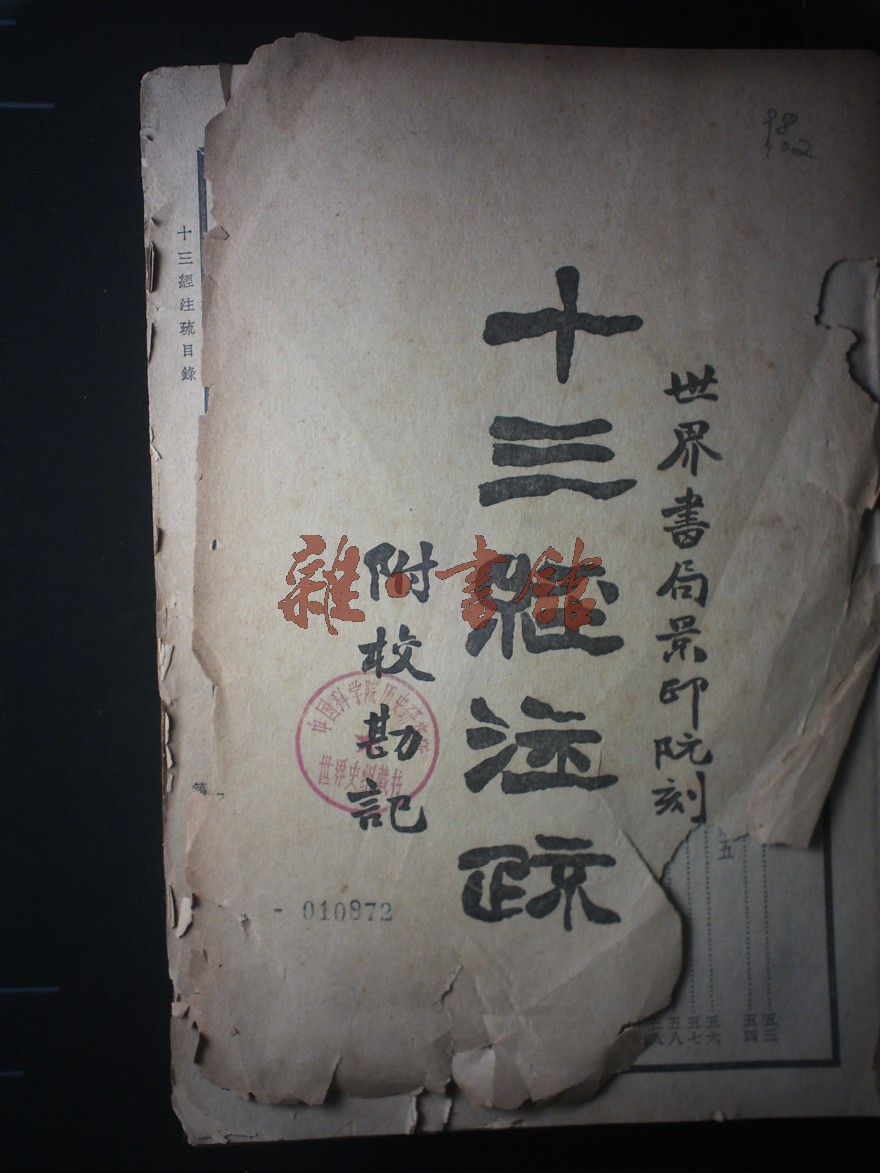 98.2
世界書局景印阮刻
十三經注疏
附校勘記
雜書館
中国科学院历史研究所
世界史组藏书
- 010872
十三經注疏目錄
五
五三
五四
五六
五七
五八